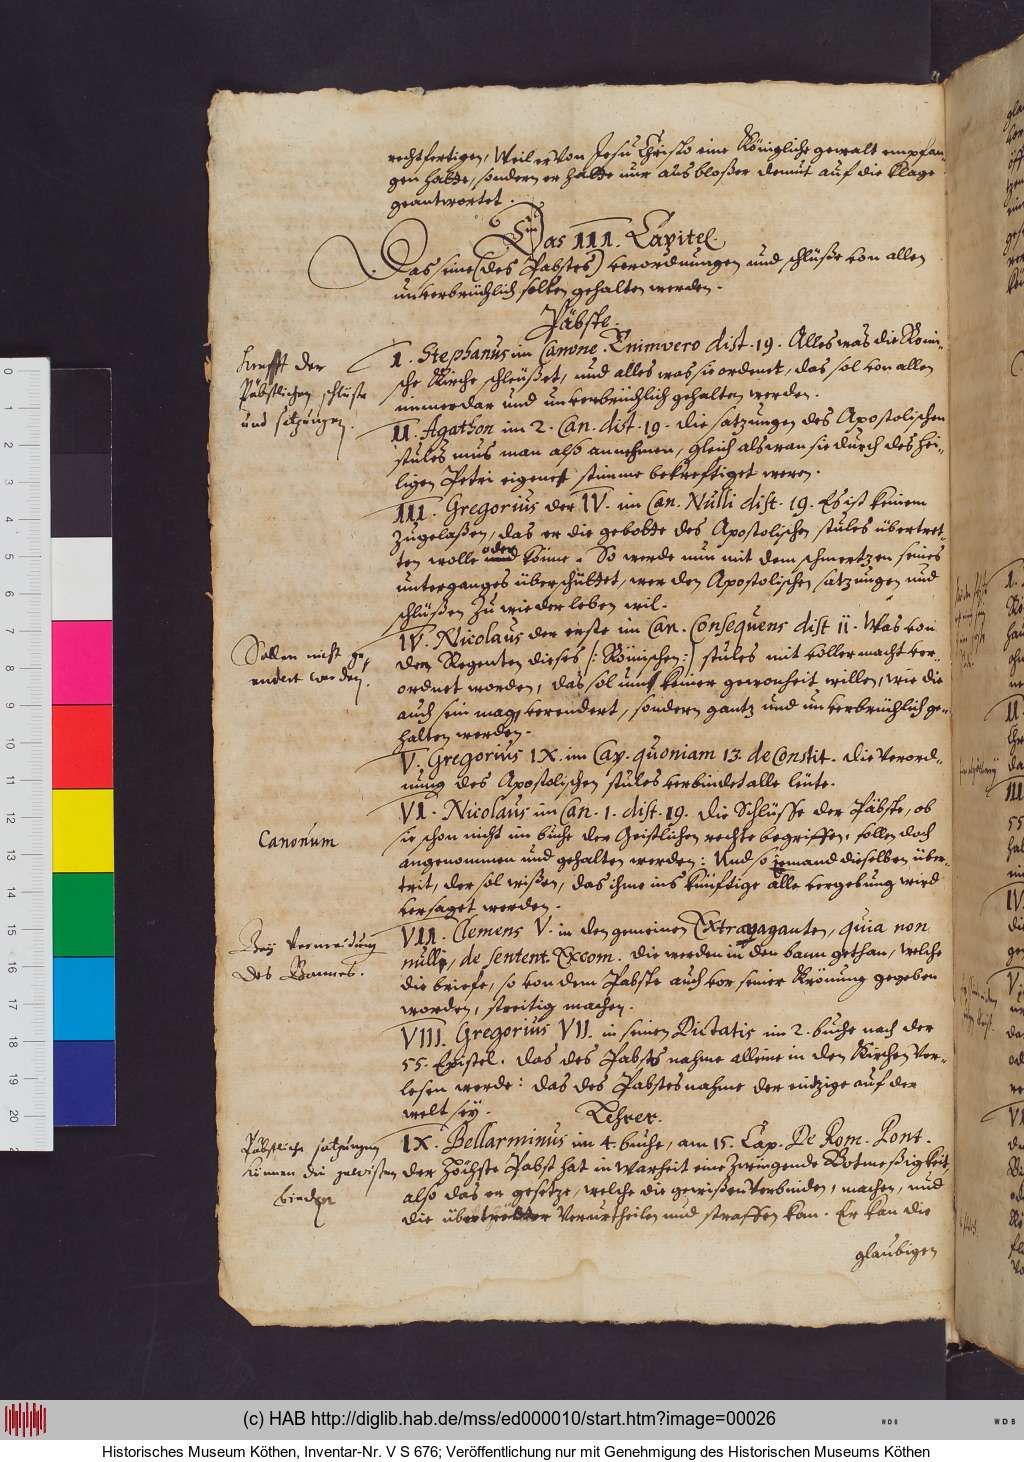 rechtfertigen, Weil er von Jesu Christo eine Königliche gewalt empfan-
gen hatte, sondern er hatte nur aus bloßer demut auf die klage
geantwortet.
Das III. Capitel.
Das seine (des Pabstes) verordnungen und schlüße von allen
unverbrüchlich sollen gehalten werden.
Päbste.
Krafft der
Päbstlichen schlüße
und satzungen.
I. Stephanus im Canone Enimvero dist. 19. Alles was die Römi-
sche Kirche schleüßet, und alles was sie ordenet, das sol von allen
immerdar und unverbrüchlich gehalten werden.
II. Agathon im 2. Can. dist. 19. die satzungen des Apostolischen
stules mus man also annehmen, gleich als wan sie durch des hei-
ligen Petri eigene stimme bekreftiget weren.
III. Gregorius der IV. im Can. Nulli dist. 19. Es ist keinem
zugelaßen, das er die gebotte des Apostolischen stules übertret-
ten wolle oder könne. So werde nun mit dem schmertzen seines
unterganges überschüttet, wer den Apostolischen satzungen und
schlüßen zu wieder leben wil.
Sollen nicht ge-
endert werden.
IV. Nicolaus der erste im Can. Consequens dist 11. Was von
den Regenten dieses (: Römischen :) stules mit voller macht ver-
ordnet worden, das sol umb keiner gewonheit willen, wie die
auch sein mag, verendert, sondern gantz und unverbrüchlich ge-
halten werden.
V. Gregorius IX. im Cap. quoniam 13. de Constit. die verord-
nung des Apostolischen stules verbindet alle leüte.
Canonum
VI. Nicolaus im Can. 1. dist. 19. die Schlüsse der Päbste, ob
sie schon nicht im buche der Geistlichen rechte begriffen, sollen doch
angenommen und gehalten werden: Und so iemand dieselben über-
trit, der sol wißen, das ihme ins künftige alle vergebung wird
versaget werden.
Bey vermeidung
des Bannes.
VII. Clemens V. in den gemeinen Extravaganten, quia non
nulli, de sentent. Excom. die werden in den bann gethan, welche
die briefe, so von dem Pabste auch vor seiner Krönung gegeben
worden, streitig machen.
VIII. Gregorius VII. in seinen Dictatis im 2. buche nach der
55. Epistel. das des Pabsts nahme alleine in den Kirchen ver-
lesen werde: das des Pabstes nahme der eintzige auf der
welt sey.
Lehrer.
Päbstliche satzungen
können die gewißen
binden
IX. Bellarminus im 4. buche, am 15. Cap. De Rom. Pont.
der Höchste Pabst hat in warheit eine zwingende Botmeßigkeit,
also das er gesetze, welche die gewißen verbinden, machen, und
die übertretter verurtheilen und straffen kan. Er kan die
glaubigen
(c) HAB http://diglib.hab.de/mss/ed000010/start.htm?image=00026
Historisches Museum Köthen, Inventar-Nr. V S 676; Veröffentlichung nur mit Genehmigung des Historischen Museums Köthen